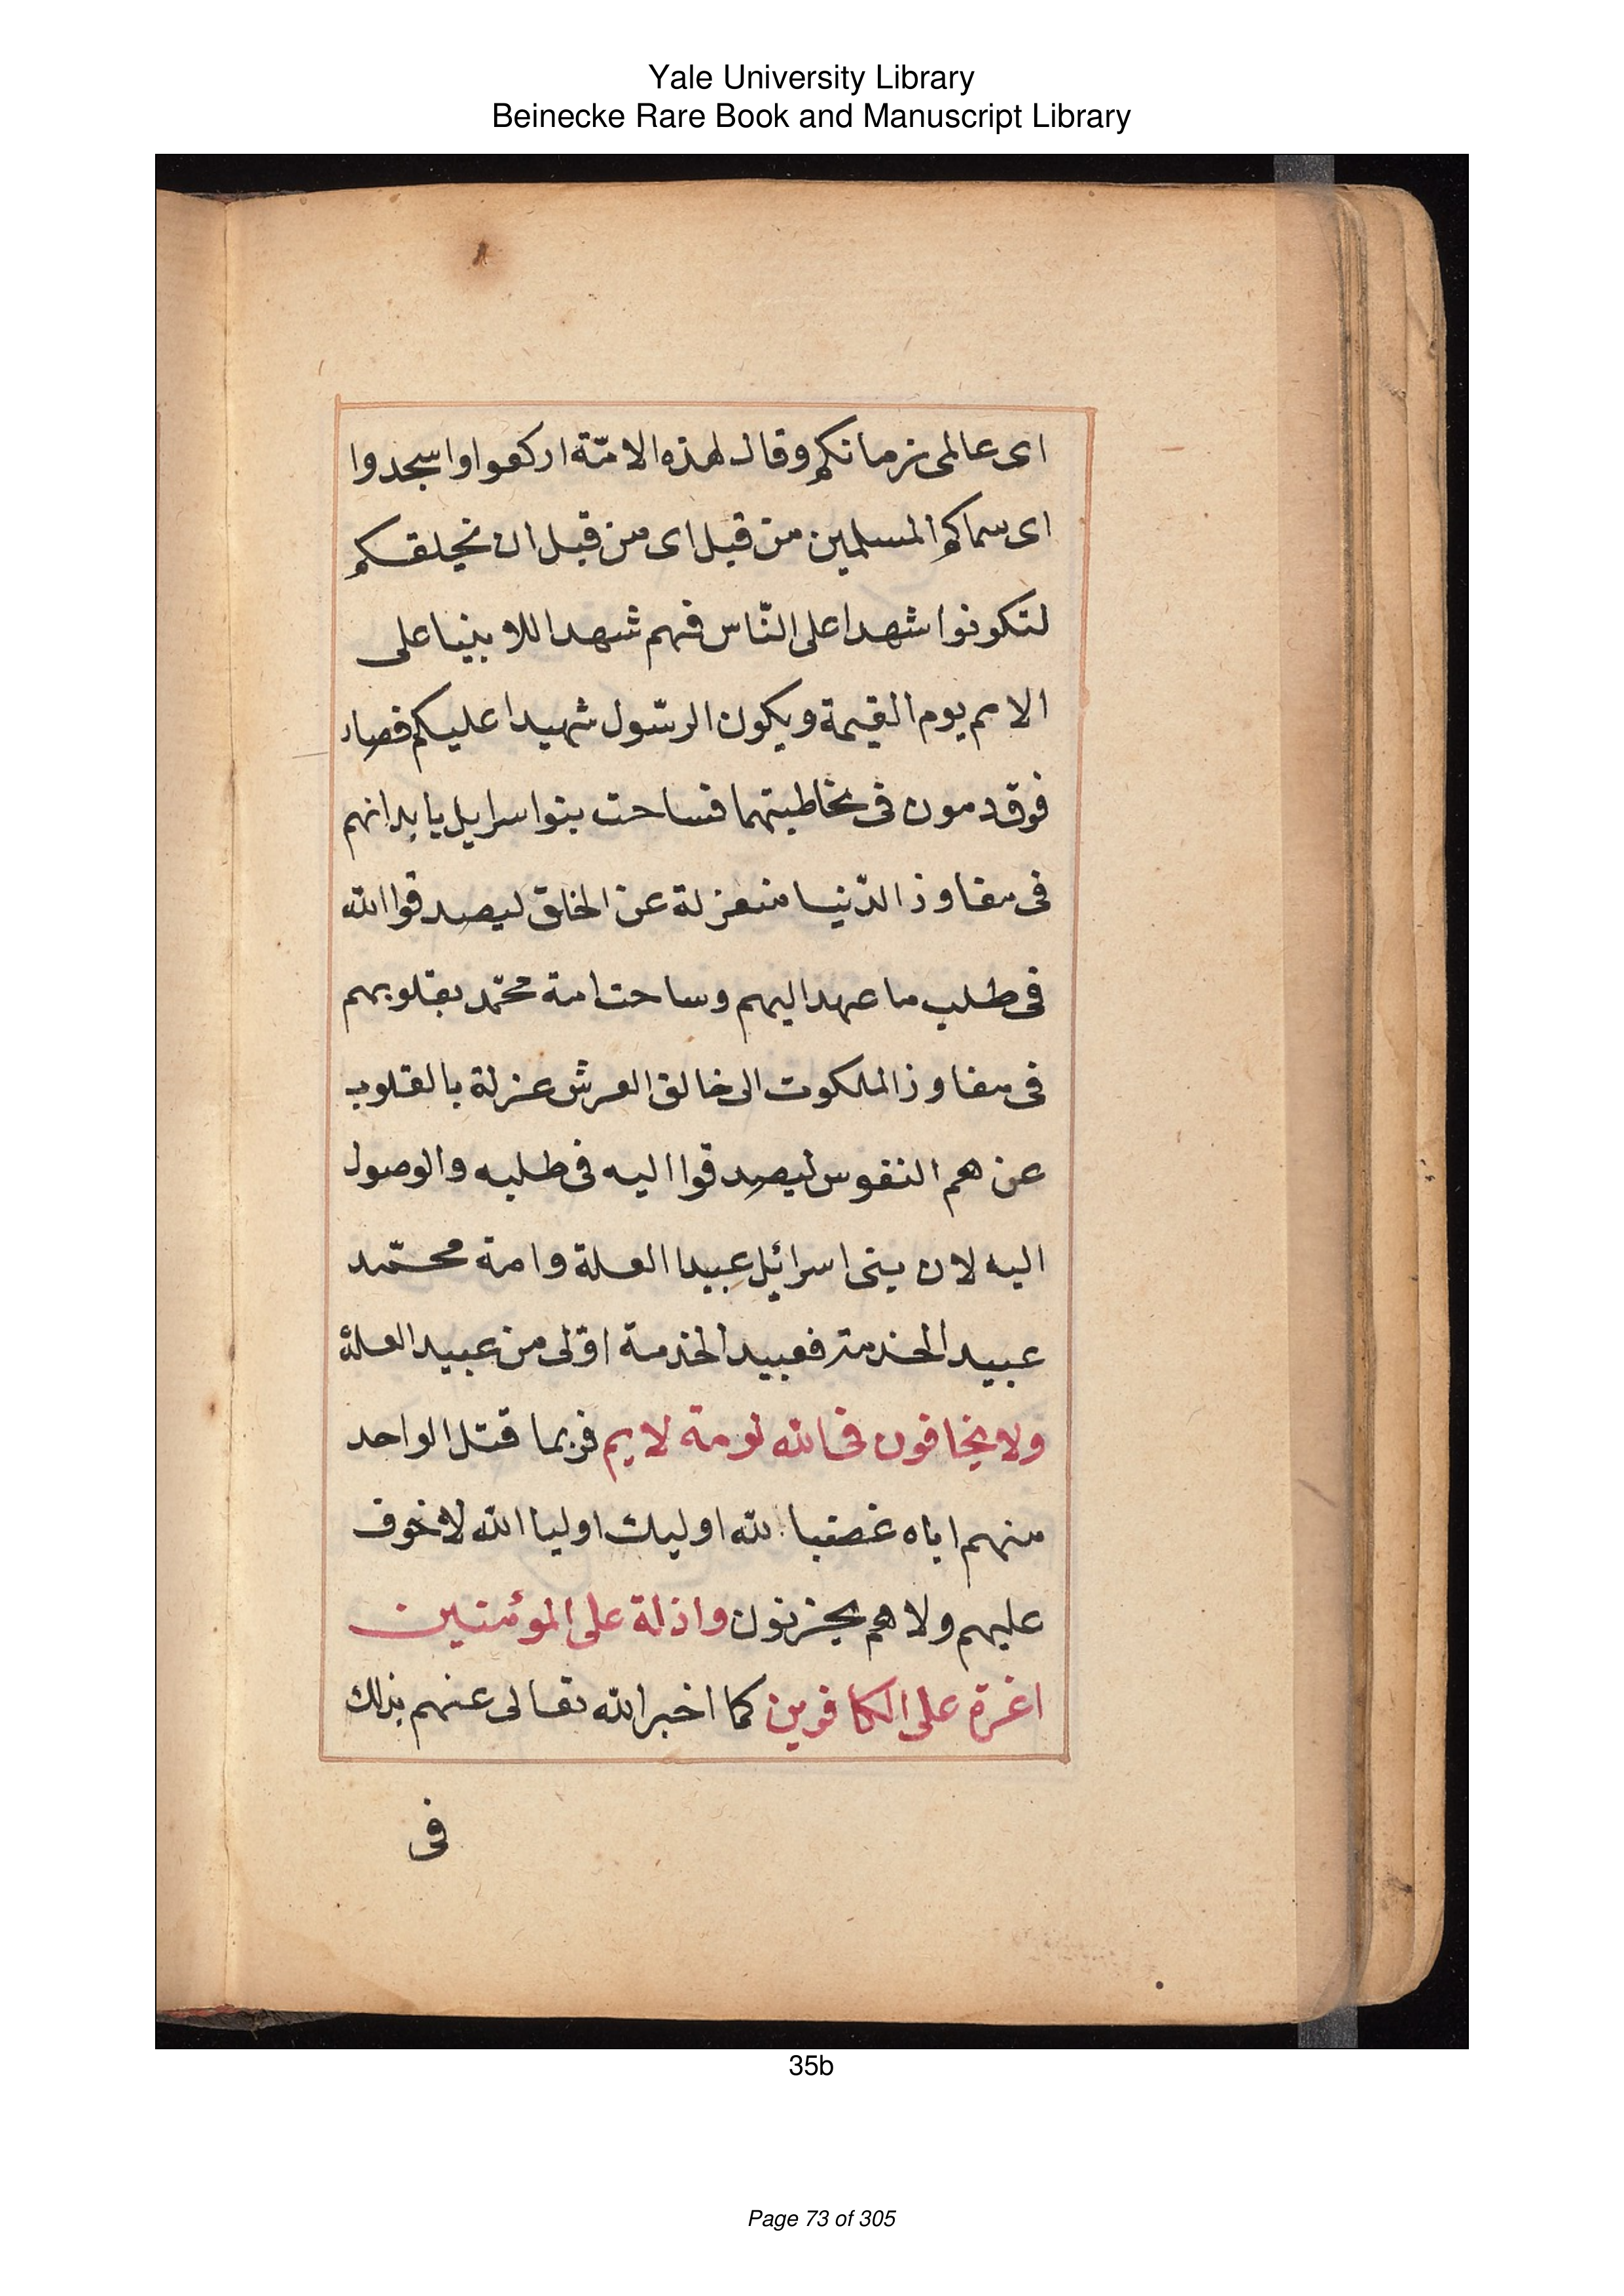 Yale University Library
Beinecke Rare Book and Manuscript Library
اى عالمى زمانكم وقال لهذه الامّة اركعوا واسجدوا
اى سماكم المسلمين من قبل اى من قبل ان نخلقكم
لتكونوا شهدا على النّاس فهم شهدا للانبيا على
الامم يوم القيمة ويكون الرسّول شهيدا عليكم فصار
فوق دمون فى مخاطبتهما فساحت بنوا سرايل بابدانهم
فى مفاوذ الدّنيا منعزلة عن الخلق ليصدقوا الله
فى طلب ما عهد اليهم وساحت امة محمّد بقلوبهم
فى مفاوذ الملكوت الى خالق العرش عزلة بالقلوب
عن هم النفوس ليصدقوا اليه فى طلبه والوصول
اليه لان بنى اسرائيل عبيدا العلة وامة محمّد
عبيد الخدمة فعبيد الخدمة اولى من عبيد العلة
ولا يخافون فى الله لومة لايم فربما قتل الواحد
منهم اباه غضبا لله اوليك اوليا الله لا خوف
عليهم ولا هم يحزنون واذلة على الموٴمنين
اغرة على الكافرين كما اخبر الله تعالى عنهم بذلك
فى
35b
Page 73 of 305